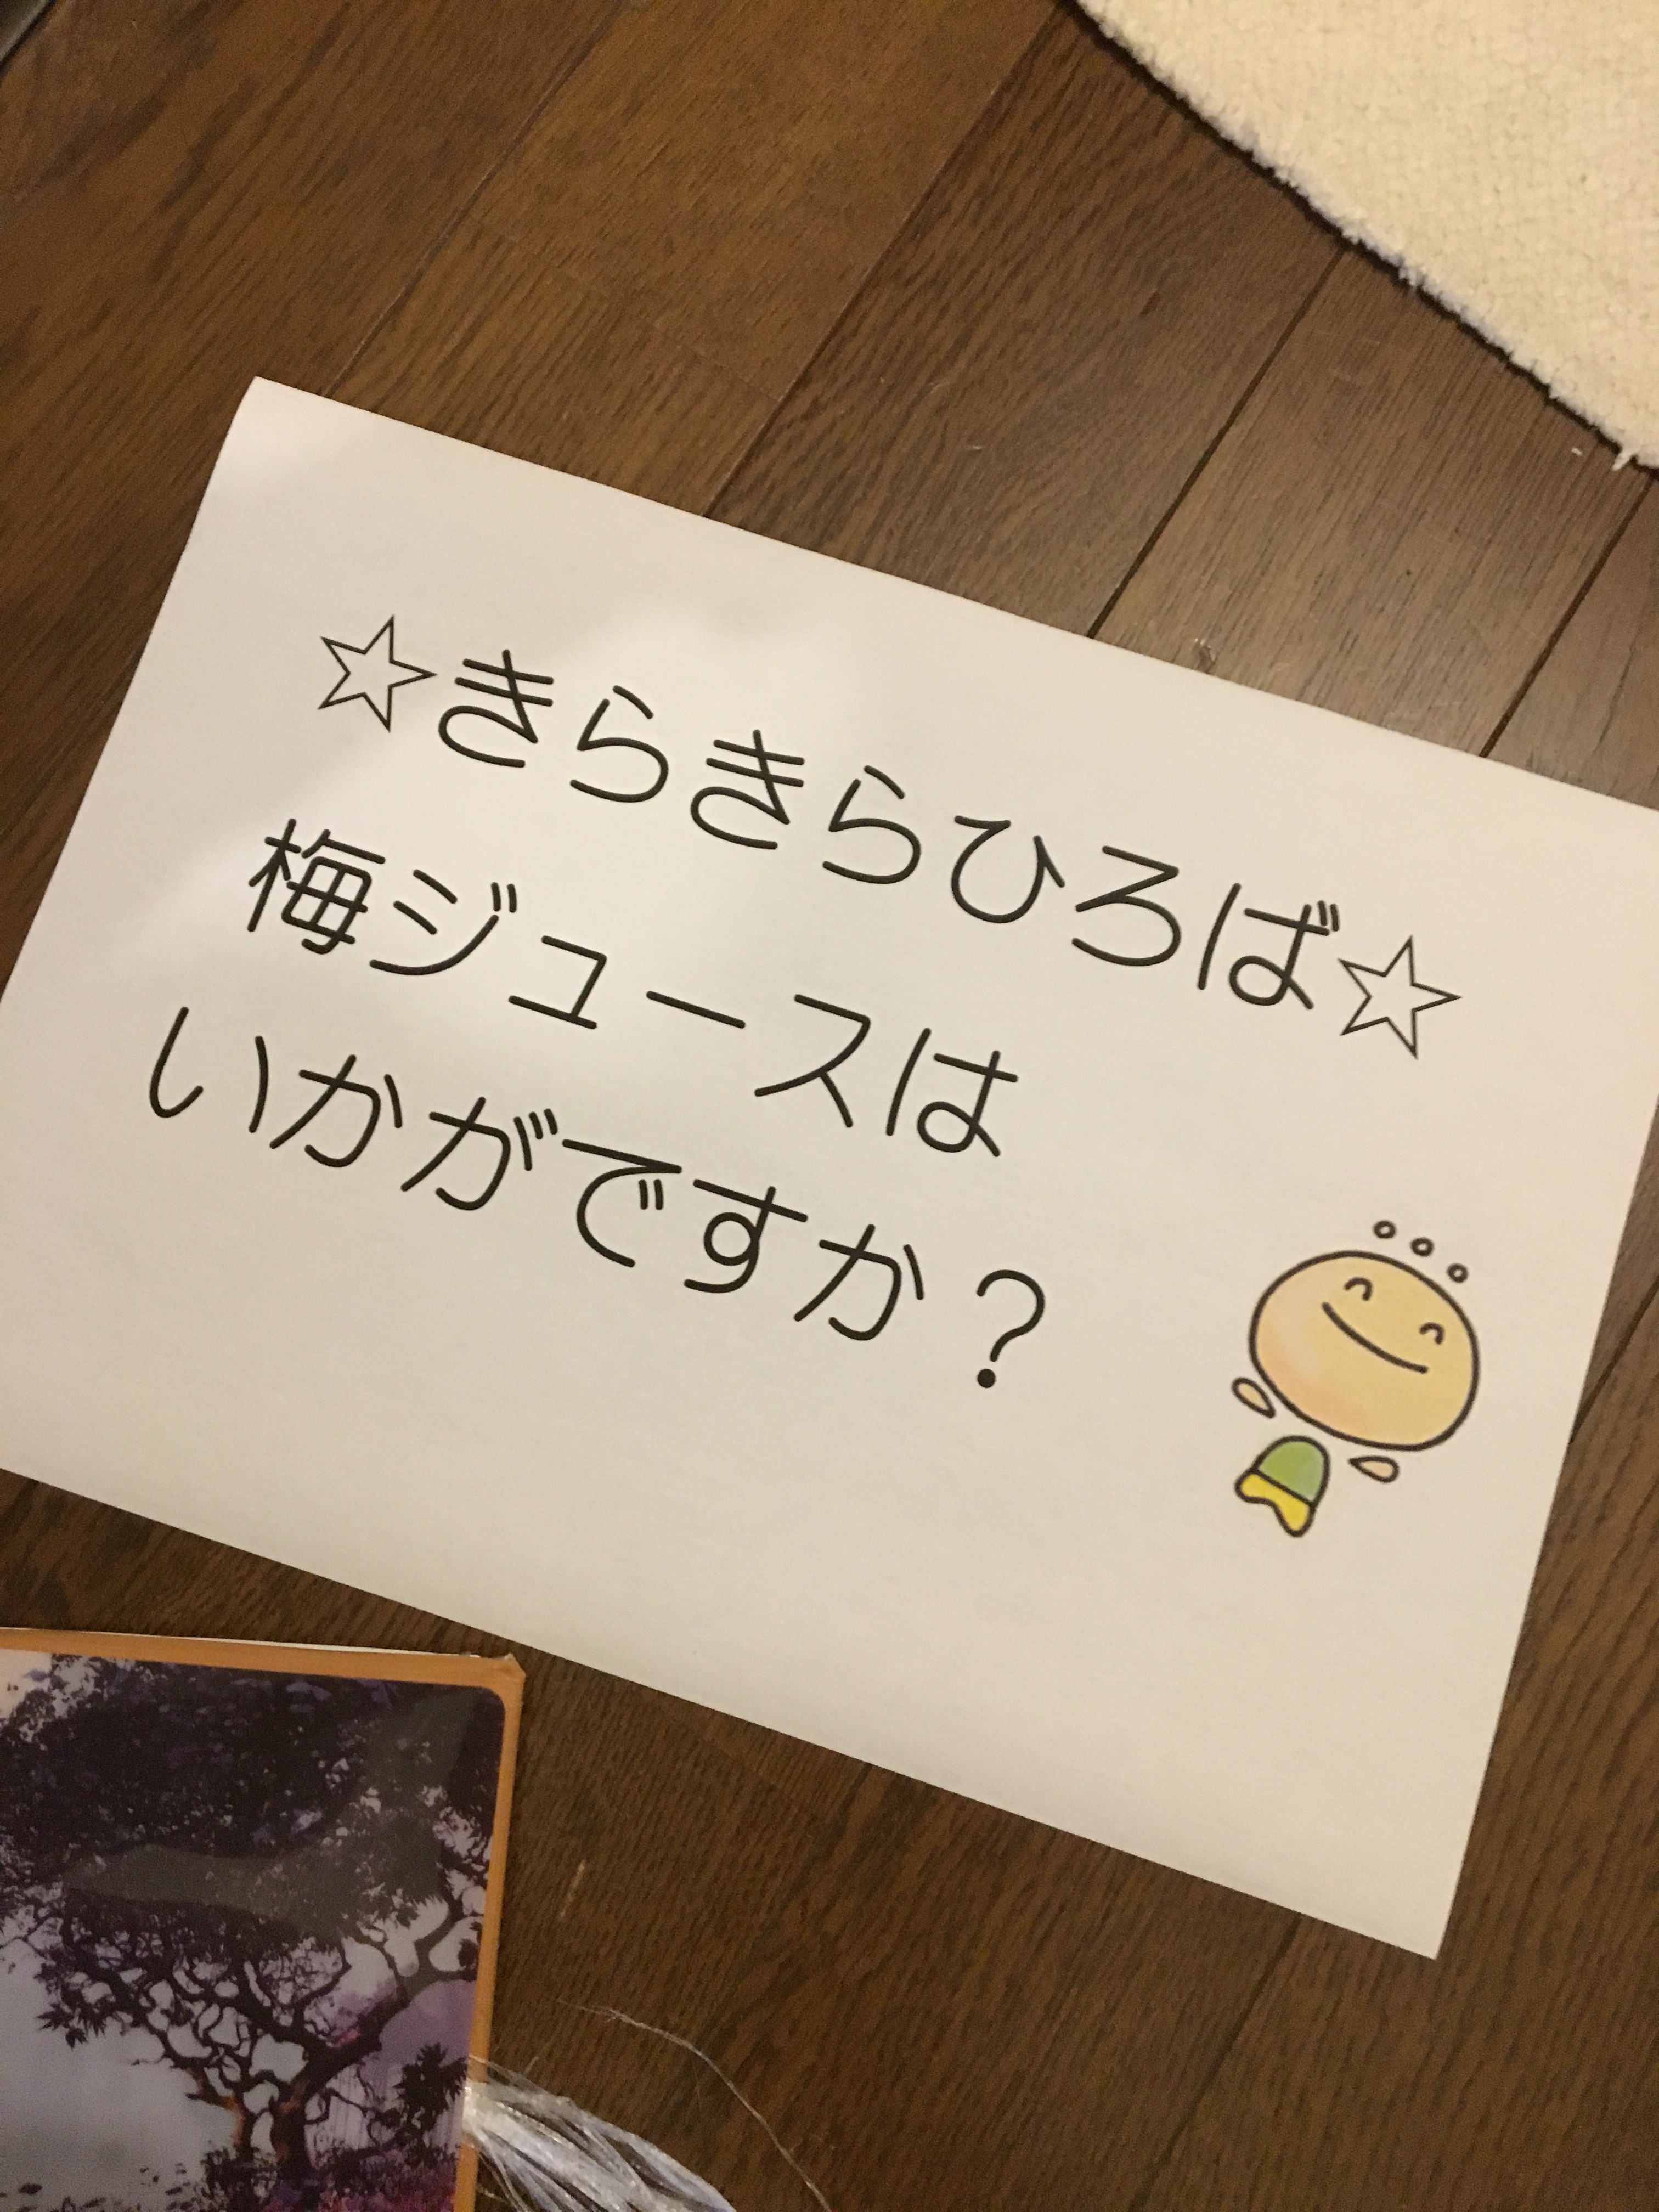 ☆きらきらひろば☆
梅ジュースは
いかがですか？